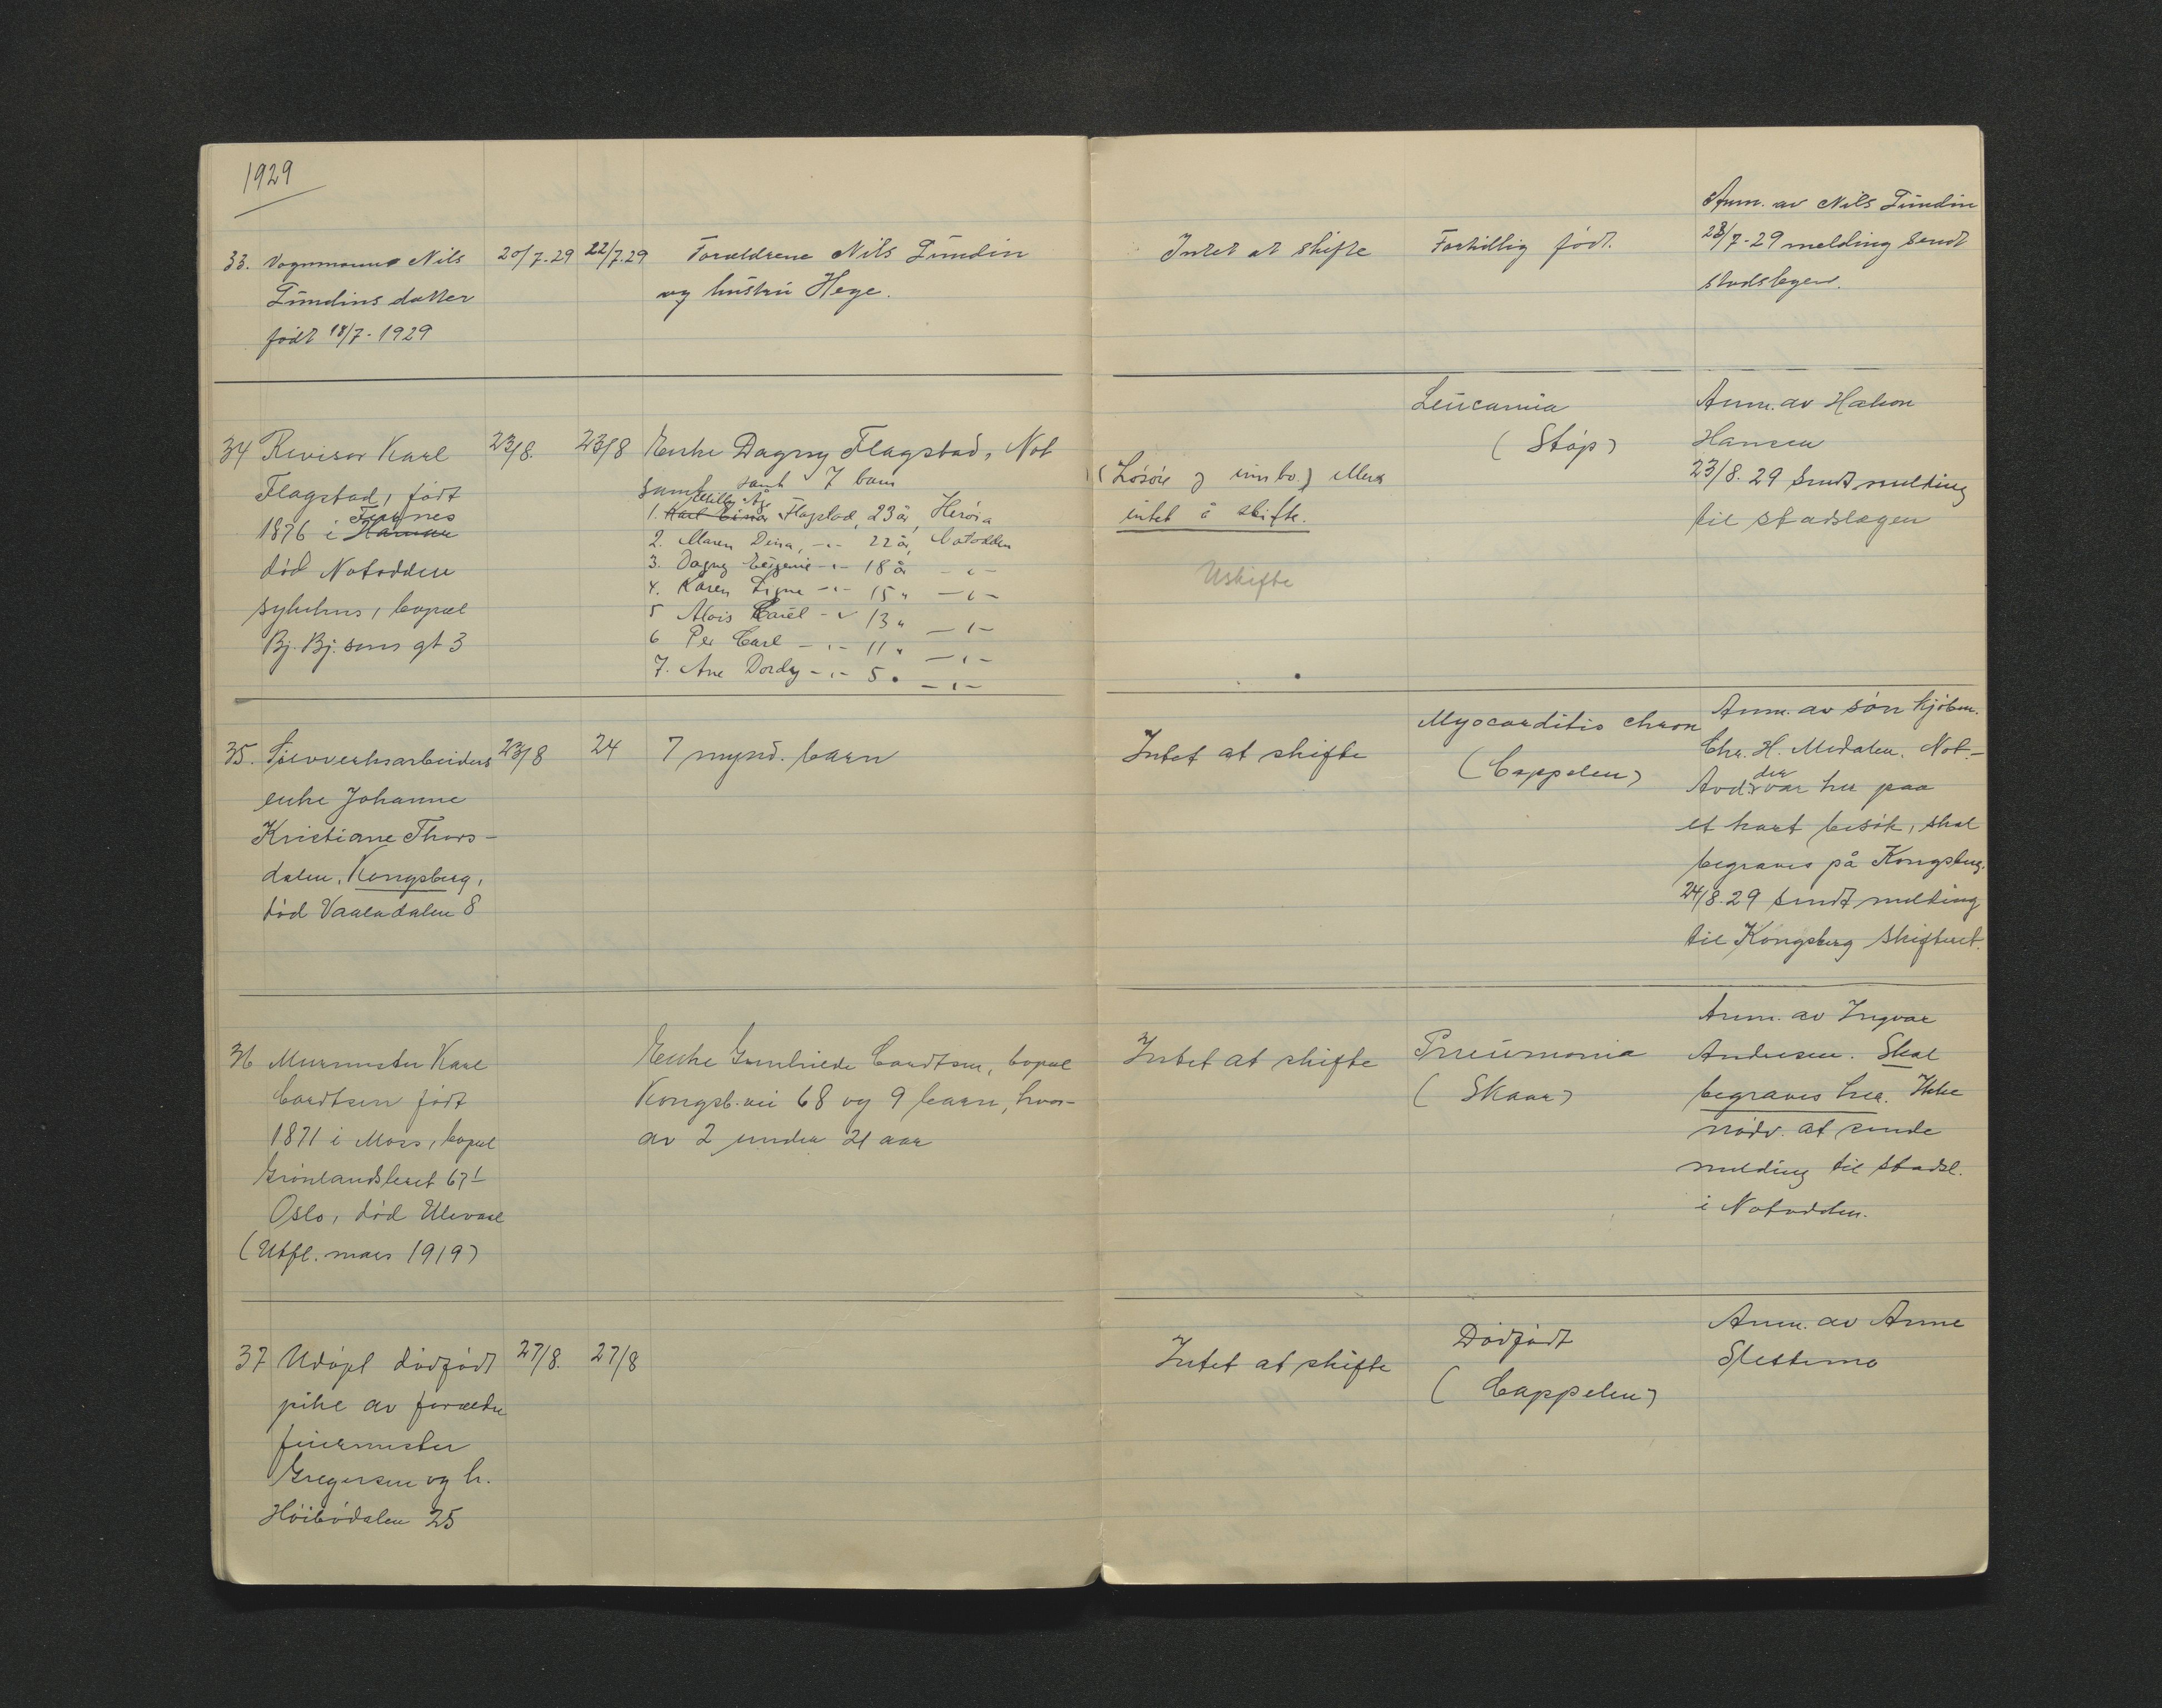 1929
33. Vognmann Nils
Lundins datter
født 18/7-1929
20/7.29
22/7.29
Forældrene Nils Lundin
og hustru Hege.
Intet at skifte
Fortidlig født.
Anm. av Nils Lundin
23/7-29 melding sendt
stadslegen.
34 Revisor Karl
Flagstad, født
1876 i Furnes
død Notodden
sykehus, bopæl
Bj. Bj.sons gt 3
23/8.
23/8
Enke Dagny Flagstad, Not
samt 7 barn
1. Karl Einar Flagstad, 23 år, Herøia
2. Maren Dina, -"- 22 år, Notodden
3. Dagny Eugenie -"- 18 år -"-
4. Karen Signe -"- 15 " -"-
5 Alois -"- 13 " -"-
6 Per Carl -"- 11 " -"-
7. Ane Dordy -"- 5 " -"-
(Løsøre og innbo.) Men
intet å skifte.
Uskifte
Leucæmia
(Støp)
Anm. av Hakon
Hansen
23/8. 29 sendt melding
til stadslægen
35. Sølvverksarbeiders
enke Johanne
Kristiane Thors-
dalen, Kongsberg,
død Vaaladalen 8
23/8
24
7 mynd. barn
Intet at skifte
Myocarditis chron
(Cappelen)
Anm. av søn kjøbm.
Chr. H. Medalen. Not.-
Avdøde var her paa
et kort besøk, skal
begraves på Kongsberg.
24/8.29 sendt melding
til Kongsberg skifteret.
36 Murmester Karl
Cordtsen født
1871 i Moss, bopæl
Grønlandsleret 67 I
Oslo, død Ulevaal
(Utfl. mars 1919)
Enke Cordtsen, bopæl
Kongsb.vei 68 og 9 barn, hvor-
av 2 under 21 aar
Intet at skifte
Pneumonia
(Skaar)
Anm. av Ingvar
Andersen. Skal
begraves her. Ikke
nødv. at sende
melding til stadsl.
i Notodden.
37 Udøpt dødfødt
pike av forældre
feiermester
Gregersen og h.
Høibødalen 25
27/8.
27/8
Intet at skifte
Dødfødt
(Cappelen)
Anm. av Anne
Slettemo